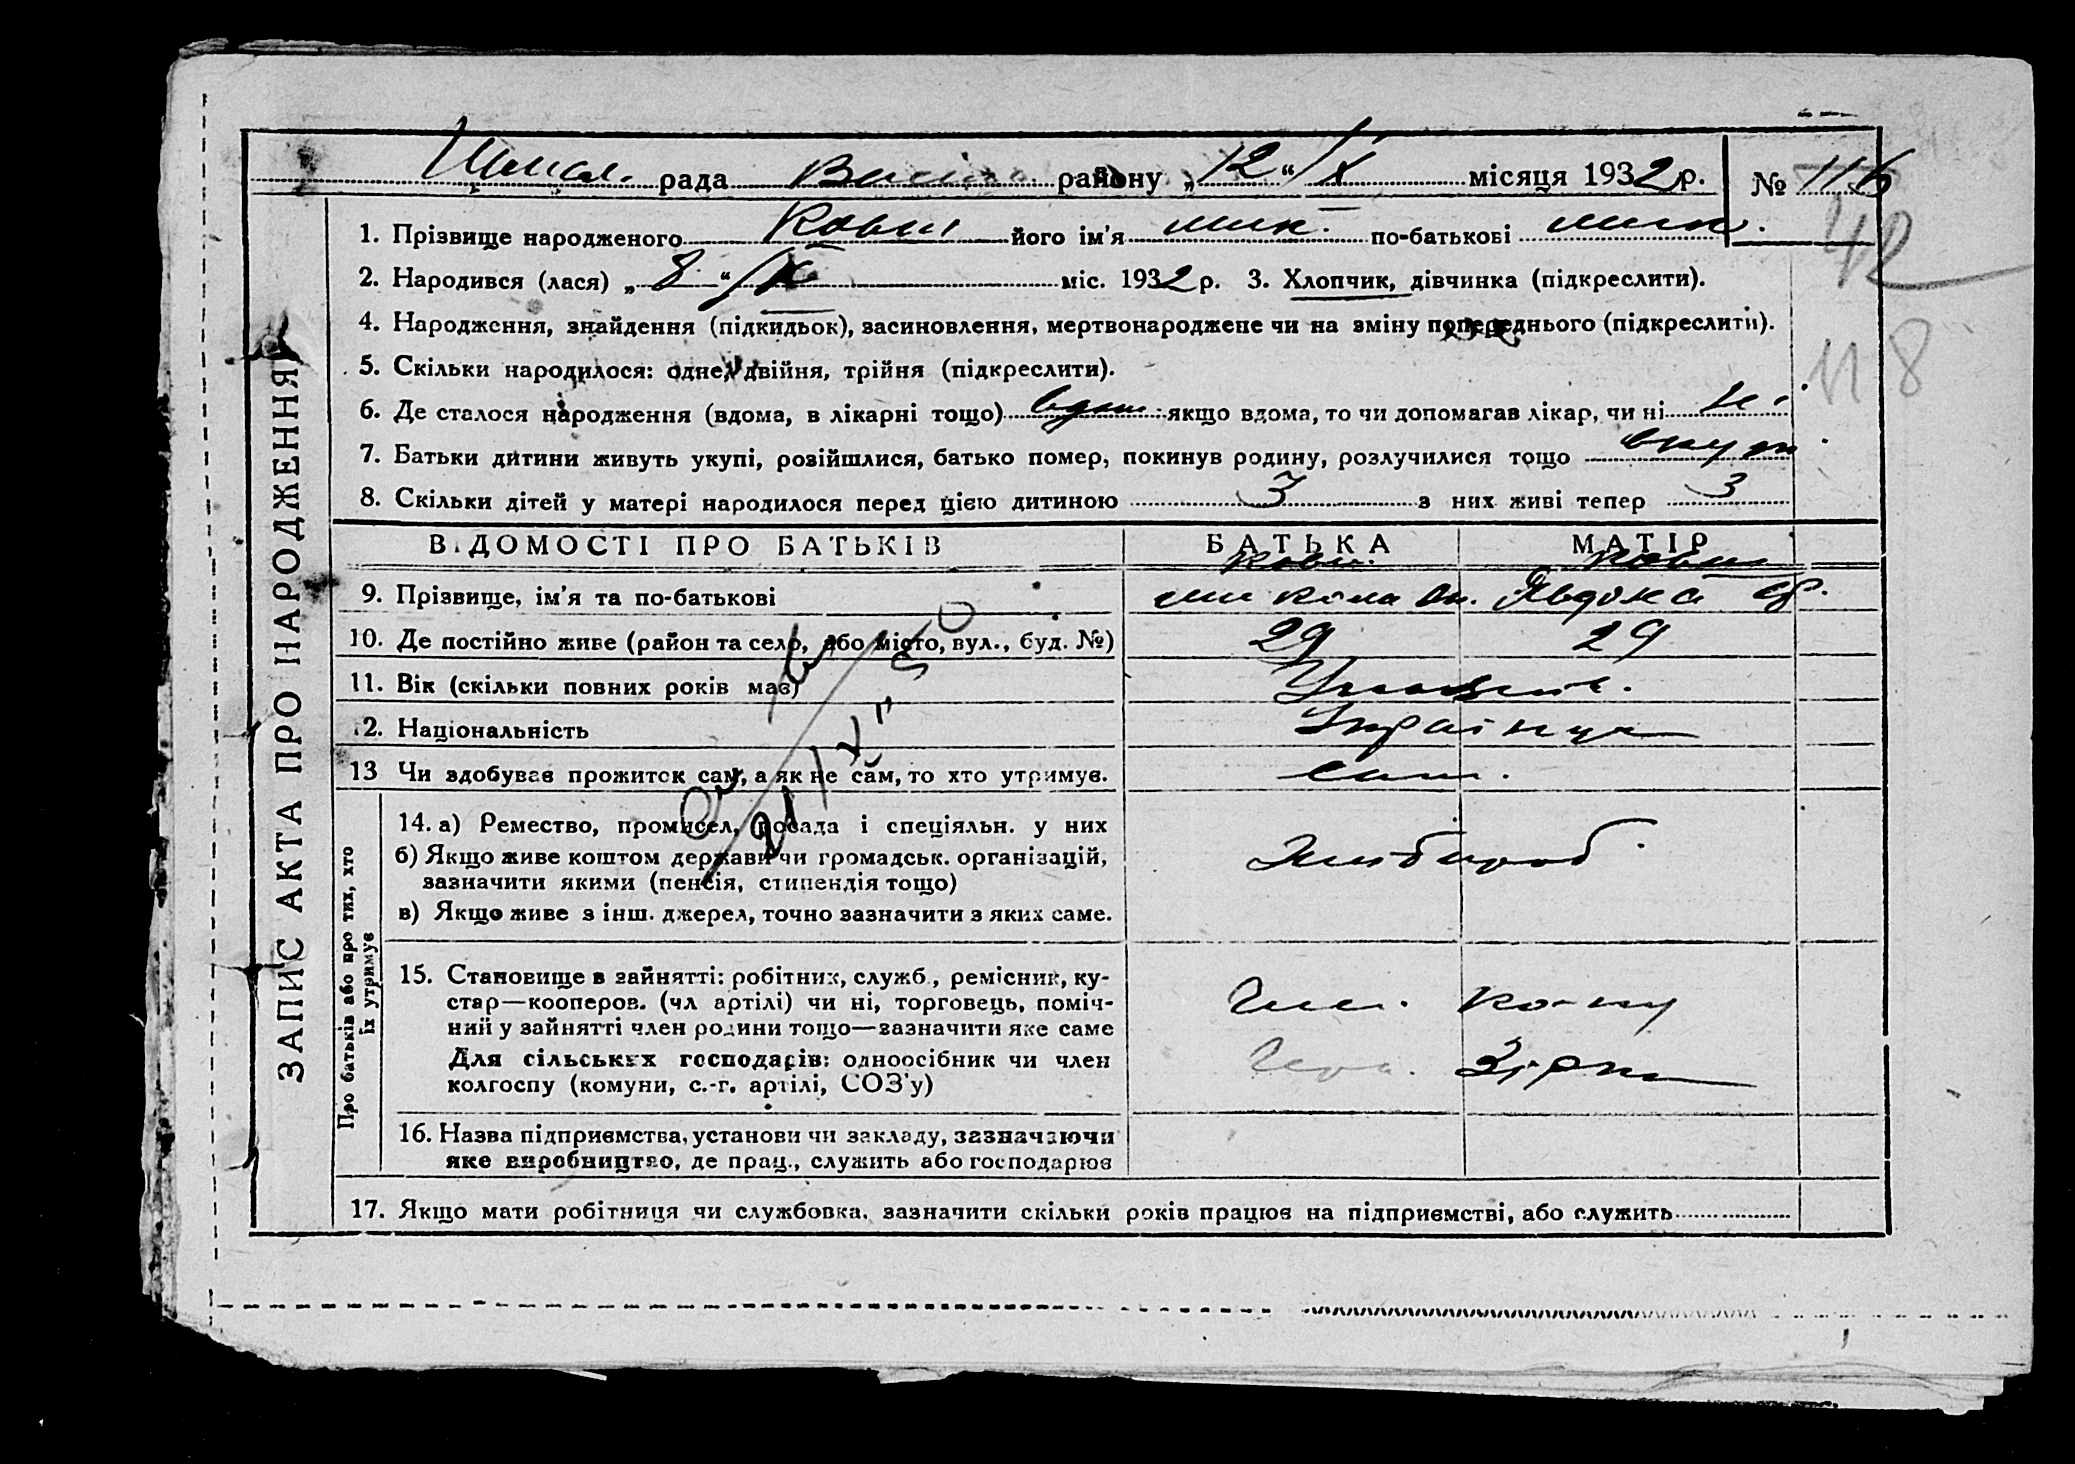 рада району „12“ IX місяця 1932 р. № 116
42
1. Прізвище народженого Ковш його ім'я Мик. по-батькові Мик.
2. Народився (лася) „8“ IX міс. 1932 р. 3. Хлопчик, дівчинка (підкреслити).
4. Народження, знайдення (підкидьок), засиновлення, мертвонароджене чи на зміну попереднього (підкреслити).
118
5. Скільки народилося: одне, двійня, трійня (підкреслити).
6. Де сталося народження (вдома, в лікарні тощо) вдома якщо вдома, то чи допомагав лікар, чи ні ні
7. Батьки дитини живуть укупі, розійшлися, батько помер, покинув родину, розлучилися тощо
8. Скільки дітей у матері народилося перед цією дитиною 3 з них живі тепер 3
ЗАПИС АКТА ПРО НАРОДЖЕННЯ
ВІДОМОСТІ ПРО БАТЬКІВ БАТЬКА МАТІР
Ковш Ковш
9. Прізвище, ім'я та по-батькові Микола Явдоха
10. Де постійно живе (район та село, або місто, вул., буд. №) 29 29
11. Вік (скільки повних років має)
12. Національність Українці
13 Чи здобував прожиток сам, а як не сам, то хто утримує. сам.
Про батьків або про тих, хто їх утримує
14. а) Ремество, промисел, посада і спеціяльн. у них Хлібороб
б) Якщо живе коштом держави чи громадськ. організацій,
зазначити якими (пенсія, стипендія тощо)
в) Якщо живе з інш. джерел, точно зазначити з яких саме.
15. Становище в зайнятті: робітник, служб., ремісник, ку-
стар—кооперов. (чл артілі) чи ні, торговець, поміч-
ний у зайнятті член родини тощо—зазначити яке саме
Для сільських господарів: одноосібник чи член
колгоспу (комуни, с.-г. артілі, СОЗ'у)
16. Назва підприємства, установи чи закладу, зазначаючи
яке виробництво, де прац., служить або господарює
17. Якщо мати робітниця чи службовка, зазначити скільки років працює на підприємстві, або служить